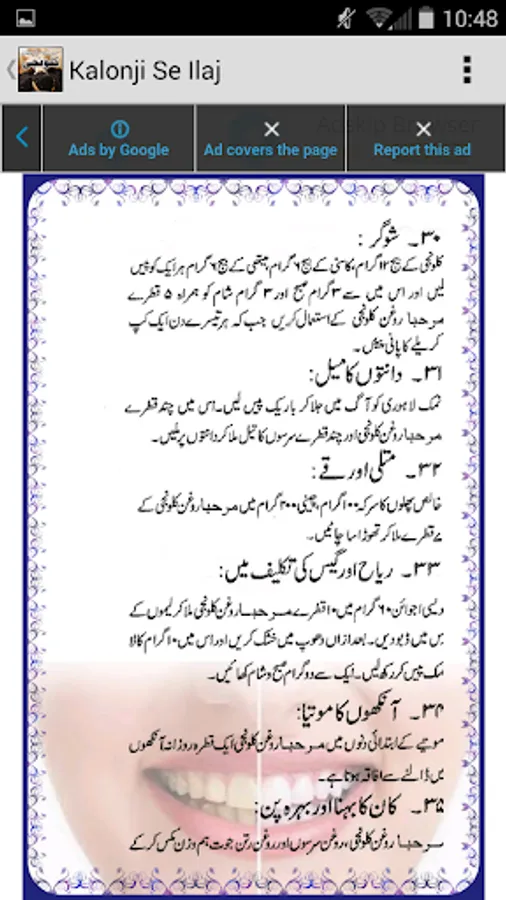 10:48
Kalonji Se Ilaj
Ads by Google
Ad covers the page
Report this ad
۳۰۔ شوگر :
کلونجی کے بیج ۱۲ گرام، کاسنی کے بیج ۶ گرام، میتھی کے بیج ۶ گرام ہر ایک کو پیس
لیں اور اس میں سے ۳ گرام صبح اور ۳ گرام شام کو ہمراہ ۵ قطرے
مرحبا روغن کلونجی کے استعمال کریں جب کہ ہر تیسرے دن ایک کپ
کریلے کا پانی پئیں۔
۳۱۔ دانتوں کا میل:
نمک لاہوری کو آگ میں جلا کر باریک پیس لیں۔ اس میں چند قطرے
مرحبا روغن کلونجی اور چند قطرے سرسوں کا تیل ملا کر دانتوں پر ملیں۔
۳۲۔ متلی اور قے:
خالص پھلوں کا سرکہ ۱۰۰ گرام، چینی ۲۰۰ گرام میں مرحبا روغن کلونجی کے
۷ قطرے ملا کر تھوڑا سا چاٹیں۔
۳۳۔ ریاح اور گیس کی تکلیف میں:
دیسی اجوائن ۶۰ گرام میں ۱۰ قطرے مرحبا روغن کلونجی ملا کر لیموں کے
رس میں ڈبو دیں۔ بعد ازاں دھوپ میں خشک کریں اور اس میں ۱۰ گرام کالا
نمک پیس کر رکھ لیں۔ ایک سے دو گرام صبح و شام کھائیں۔
۳۴۔ آنکھوں کا موتیا:
موتیے کے ابتدائی دنوں میں مرحبا روغن کلونجی ایک قطرہ روزانہ آنکھوں
میں ڈالنے سے افاقہ ہوتا ہے۔
۳۵۔ کان کا بہنا اور بہرہ پن:
مرحبا روغن کلونجی، روغن سرسوں اور روغن رتن جوت ہم وزن مکس کر کے